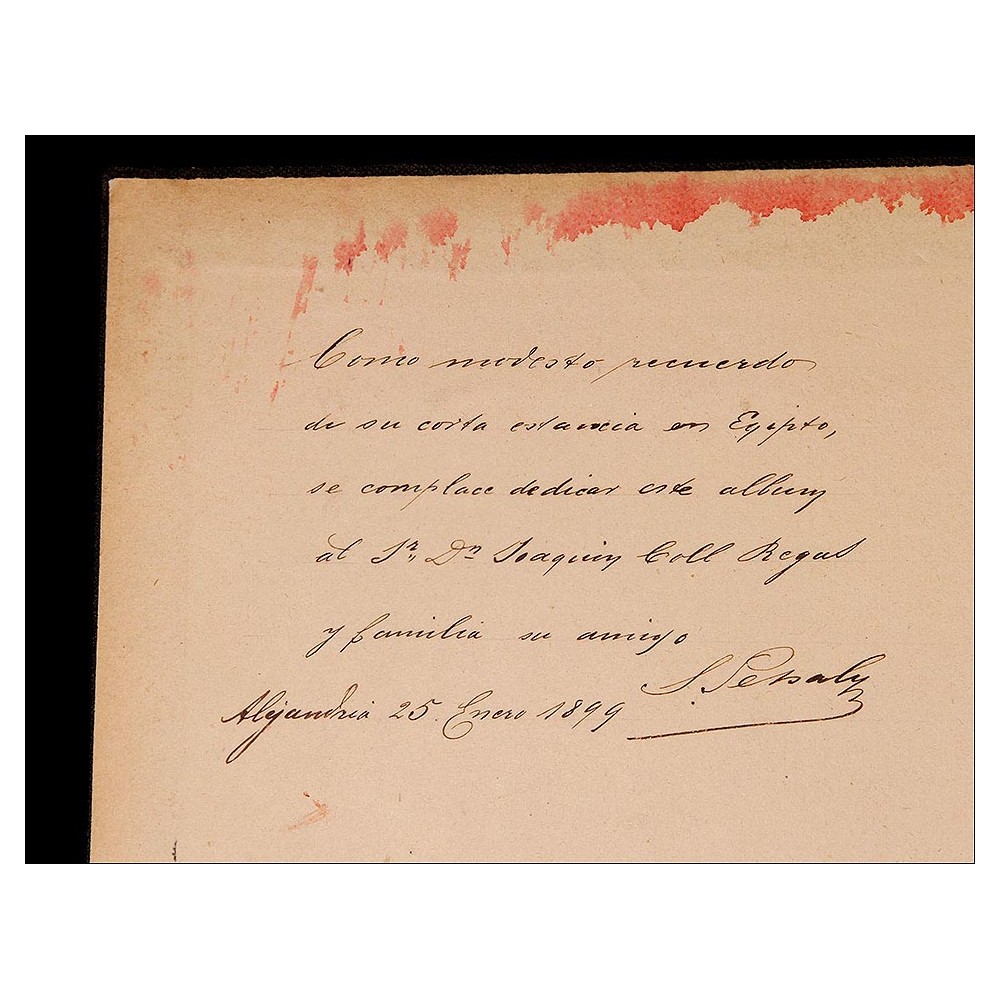 Como modesto recuerdo
de su corta estancia en Egipto,
se complace dedicar este album
al Sr. Dn Joaquin Coll Regas
y familia su amigo
Alejandria 25 Enero 1899